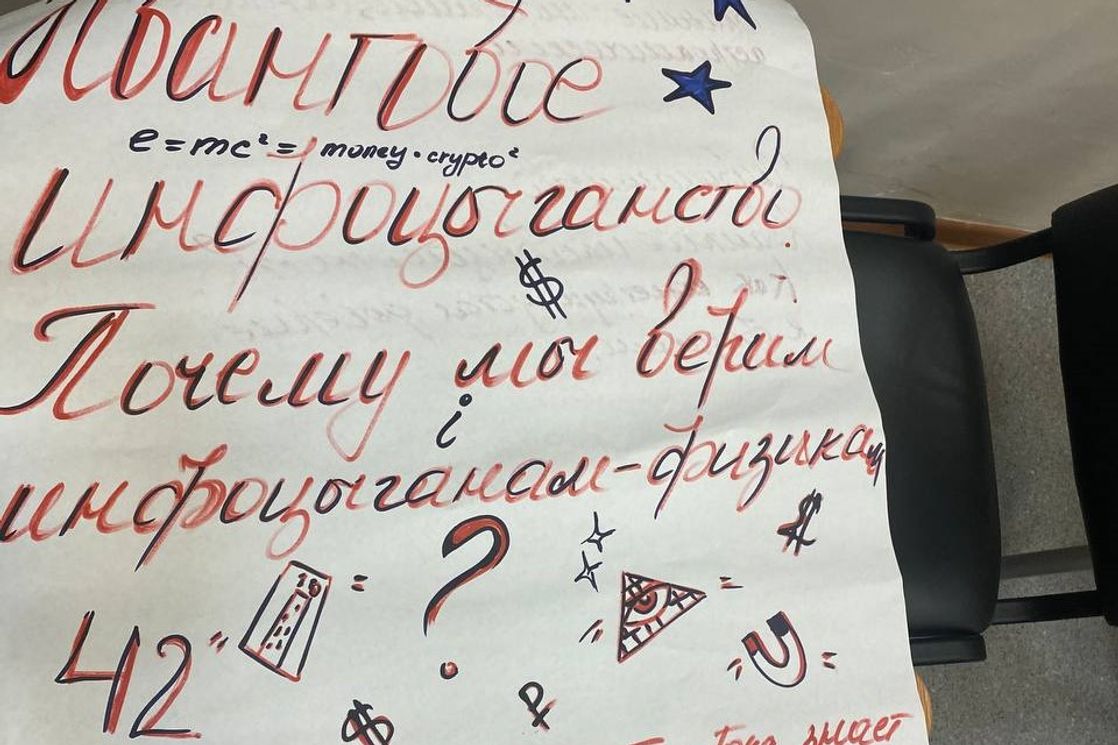 Квантовое
e=mc²= money·crypto²
инфоцыганство
$
Почему мы верим
инфоцыганам-физикам
?
42
$
₽
$
знает